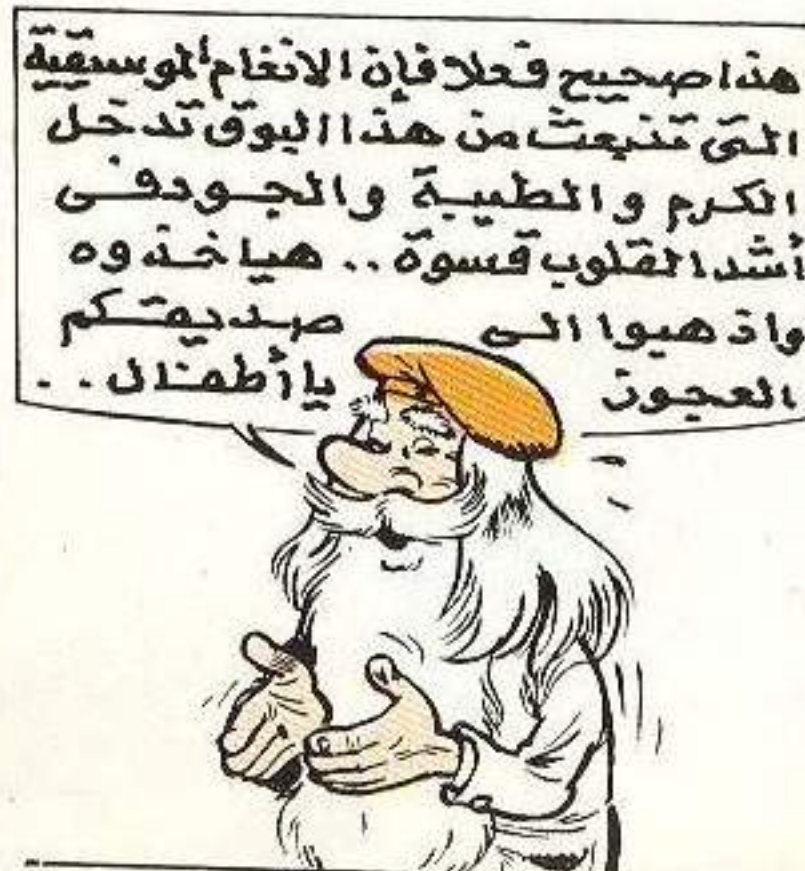 هذا صحيح فعلا فإن الانغام الموسيقية
التى تنبعث من هذا البوق تدخل
الكرم والطيبة والجود فى
أشد القلوب قسوة .. هيا خذوه
واذهبوا الى صديقكم
العجوز يا أطفال ..